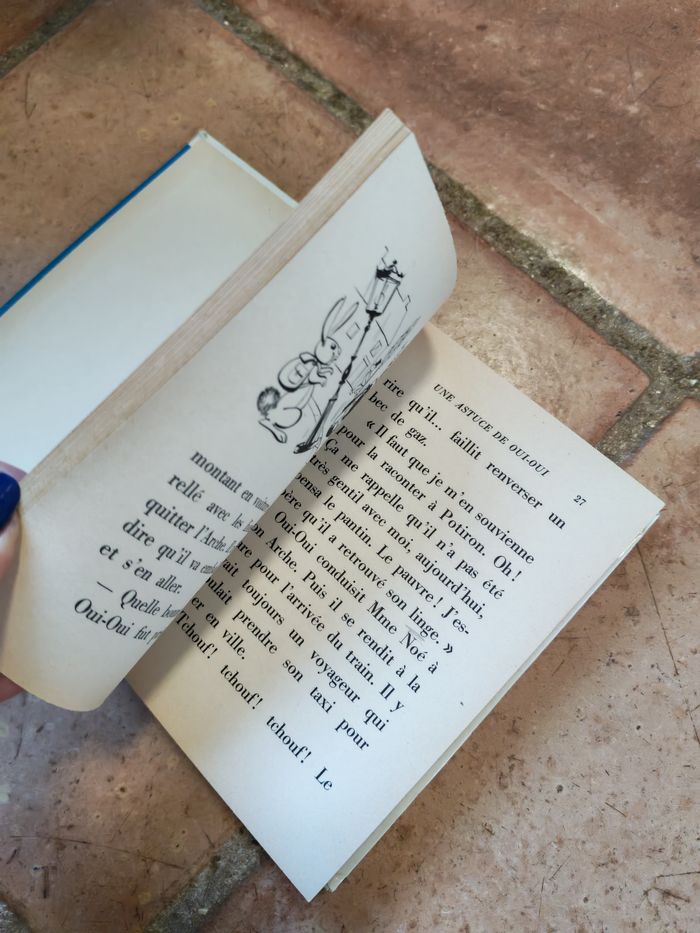 montant en
rellé avec les
quitter l'Arche.
dire qu'il va
et s'en aller.
— Quelle
Oui-Oui fut
UNE ASTUCE DE OUI-OUI 27
rire qu'il... faillit renverser un
bec de gaz.
« Il faut que je m'en souvienne
pour la raconter à Potiron. Oh!
Ça me rappelle qu'il n'a pas été
très gentil avec moi, aujourd'hui,
pensa le pantin. Le pauvre! J'es-
père qu'il a retrouvé son linge. »
Oui-Oui conduisit Mme Noé à
son Arche. Puis il se rendit à la
pour l'arrivée du train. Il y
avait toujours un voyageur qui
voulait prendre son taxi pour
en ville.
Tchouf! tchouf! tchouf! Le